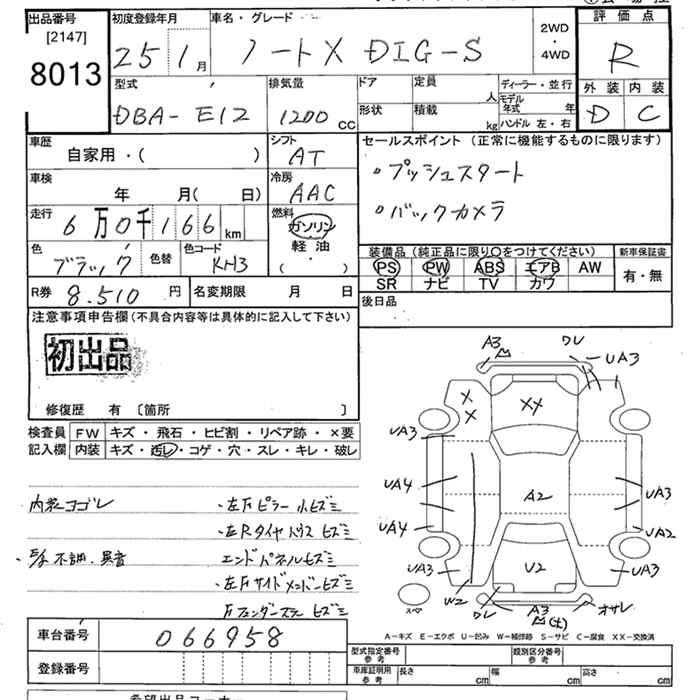 出品番号
[2147]
8013
初度登録年月
25 1月
車名・グレード
ノートX DIG-S
2WD
・
4WD
評価点
R
外装 内装
D C
型式
DBA-E12
排気量
1200 CC
ドア
形状
定員
人
積載
kg
ディーラー・並行
モデル年式 年
ハンドル 左・右
車歴
自家用・( )
シフト
AT
車検
年 月( 日)
冷房
AAC
走行
6万0千166 km
燃料
ガソリン
軽油
( ・ )
色
ブラック
色替
色コード
KH3
R券 8.510 円
名変期限 月 日
セールスポイント (正常に機能するものに限ります)
・プッシュスタート
・バックカメラ
装備品 (純正品に限り○をつけてください)
PS PW ABS エアB AW
SR ナビ TV カワ
新車保証書
有・無
後日品
注意事項申告欄(不具合内容等は具体的に記入して下さい)
初出品
修復歴 有 〔箇所 〕
検査員記入欄
FW キズ・飛石・ヒビ割・リペア跡・×要
内装 キズ・汚レ・コゲ・穴・スレ・キレ・破レ
内装ヨゴレ
不調・異音
・左Fピラー小ヒズミ
・左Rタイヤハウスヒズミ
エンドパネルヒズミ
・左Fサイドメンバーヒズミ
Fフェンダーステーヒズミ
A3
ワレ
UA3
XX
X
X
UA3
UA4
UA4
UA3
A2
UA3
UA2
UA3
U2
W2
ワレ
A3
オサレ
スペア
A−キズ E−エクボ U−凹み W−補修跡 S−サビ C−腐食 XX−交換済
車台番号 066958
登録番号
型式指定番号 参考
類別区分番号 参考
車庫証明用 参考
長さ cm
幅 cm
高さ cm
希望出品コーナー